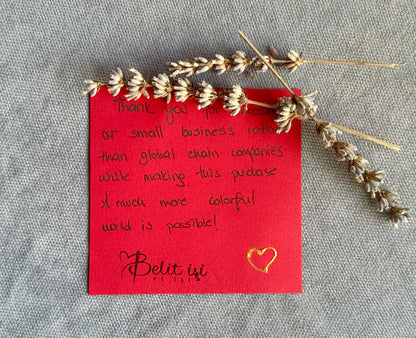 Thank you for
or small business rath
than global chain companies
while making this puchase
A much more colorful
world is possible!
Belit işi
el işi